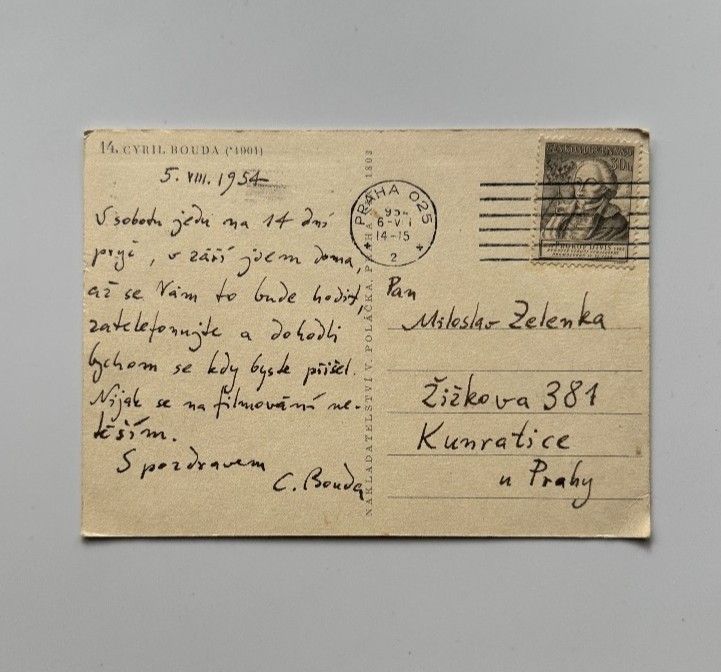 14. CYRIL BOUDA (*1901)
5. VIII. 1954
V sobotu jedu na 14 dní
pryč, v září jsem doma,
až se Vám to bude hodit,
zatelefonujte a dohodli
bychom se kdy byste přišel.
Nijak se na filmování ne-
těším.
S pozdravem
C. Bouda
NAKLADATELSTVÍ V. POLÁČKA, PRAHA 1803
PRAHA 025
14-15
2
Pan
Miloslav Zelenka
Žižkova 381
Kunratice
u Prahy